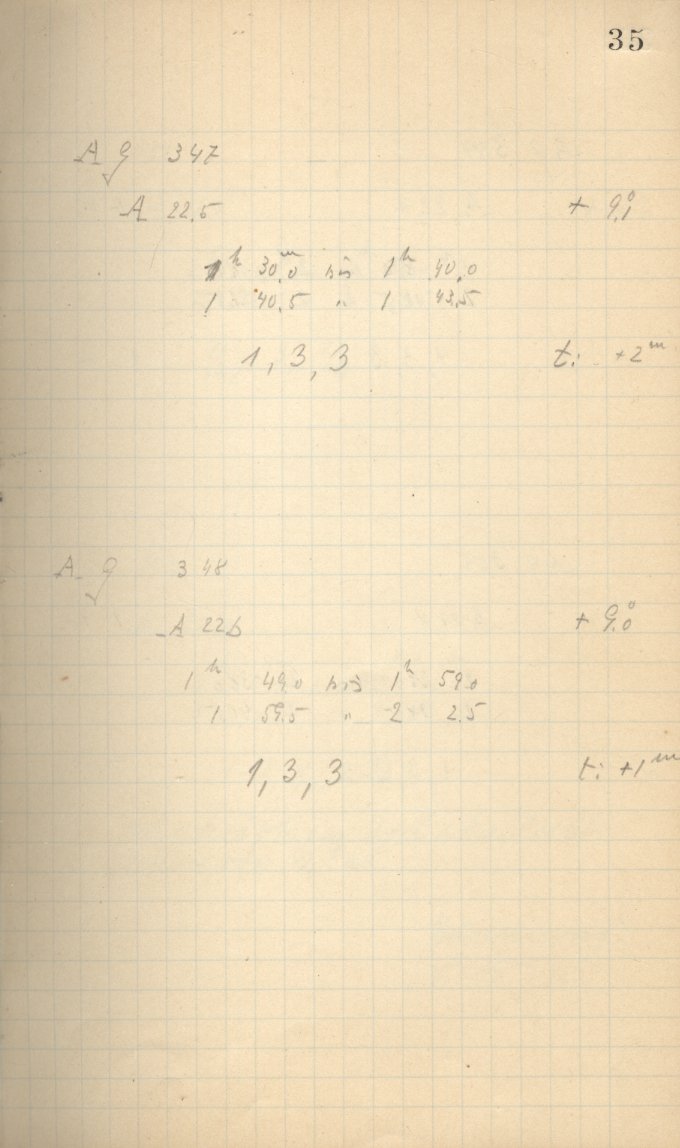 35
A g 347
A 22.5 + 9°.1
1h 30m.0 bis 1h 40.0
1 40.5 " 1 43.5
1, 3, 3 t: +2m
A g 348
A 226 + 9°.0
1h 49.0 bis 1h 59.0
1 59.5 " 2 2.5
1, 3, 3 t: +1m